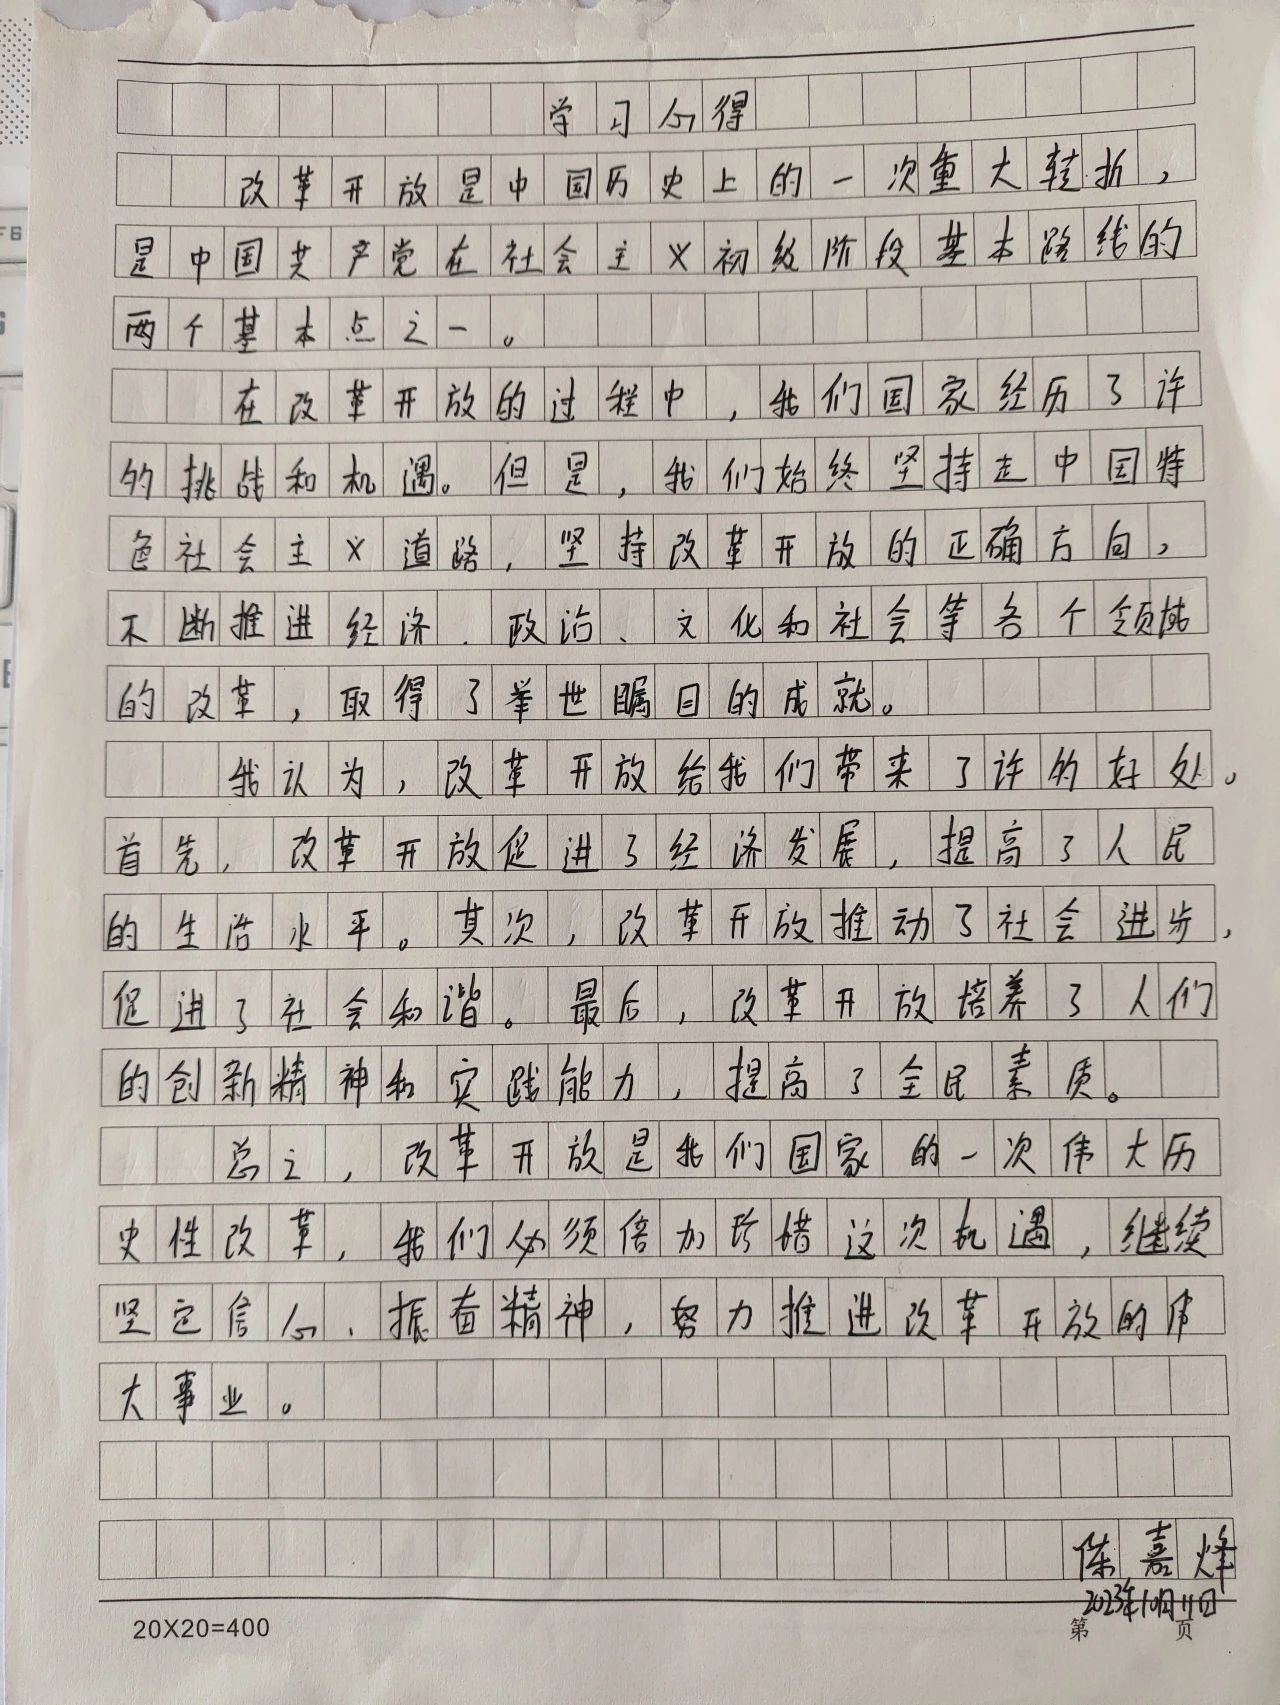 学习心得
改革开放是中国历史上的一次重大转折，
是中国共产党在社会主义初级阶段基本路线的
两个基本点之一。
在改革开放的过程中，我们国家经历了许
的挑战和机遇。但是，我们始终坚持走中国特
色社会主义道路，坚持改革开放的正确方向，
不断推进经济、政治、文化和社会等各个领域
的改革，取得了举世瞩目的成就。
我认为，改革开放给我们带来了许的好处。
首先，改革开放促进了经济发展，提高了人民
的生活水平。其次，改革开放推动了社会进步，
促进了社会和谐。最后，改革开放培养了人们
的创新精神和实践能力，提高了全民素质。
总之，改革开放是我们国家的一次伟大历
史性改革，我们必须倍加珍惜这次机遇，继续
坚定信心、振奋精神，努力推进改革开放的伟
大事业。
陈嘉烽
2023年10月11日
20X20=400
第 页
F6